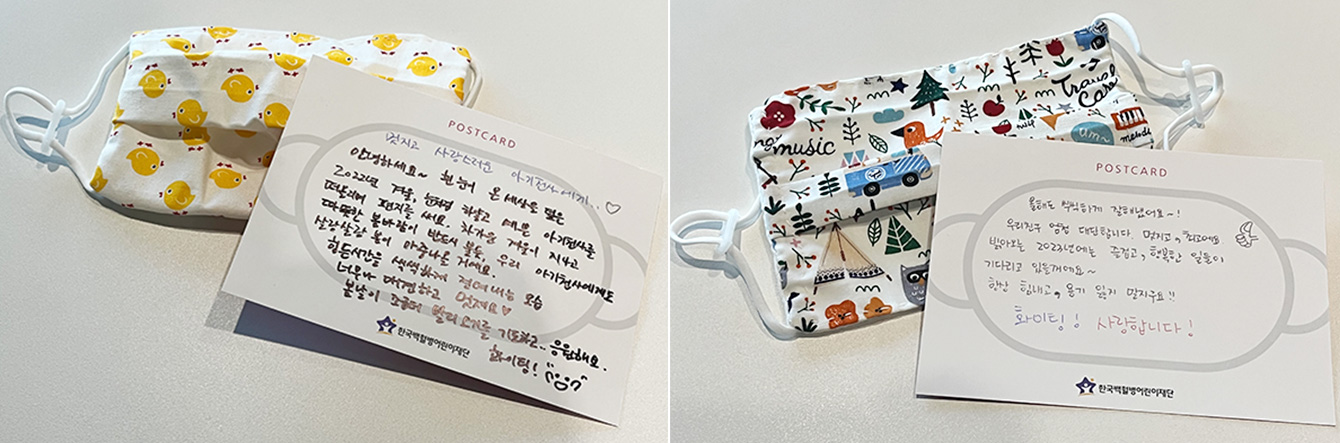 POSTCARD
멋지고 사랑스러운 아기천사에게..♡
안녕하세요~ 흰눈이 온 세상을 덮은
2022년 겨울, 눈처럼 하얗고 예쁜 아기천사를
떠올리며 편지를 써요. 차가운 겨울이 지나고
따뜻한 봄바람이 반드시 불듯, 우리 아기천사에게도
살랑살랑 봄이 마중나올 거예요.
힘든시간을 씩씩하게 견뎌내는 모습
너무나 대견하고 멋져요♡
봄날이 조금더 빨리 오기를 기도하고.. 응원해요.
화이팅!
한국백혈병어린이재단
music
Travel
Care
melody
POSTCARD
올해도 씩씩하게 잘해냈어요~!
우리친구 엄청 대단합니다. 멋지고, 최고예요.
밝아오는 2023년에는 즐겁고, 행복한 일들이
기다리고 있을거예요~
항상 힘내고, 용기 잃지 말자구요!!
화이팅! 사랑합니다!
한국백혈병어린이재단